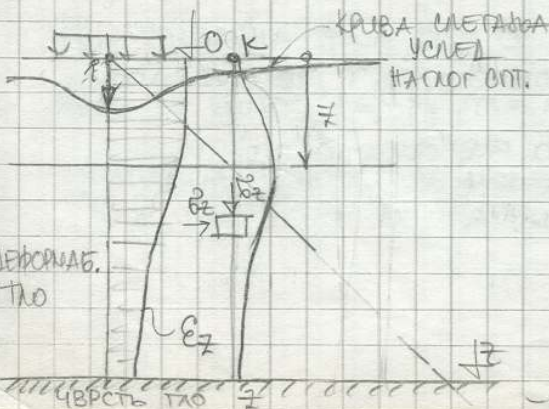 КРИВА СЛЕГАЊА
УСЛЕД
НАГЛОГ ОПТ.
О К
z
σz
σz
ДЕФОРМАБ.
ТЛО
εz
z
ЧВРСТЬ ТЛО
z